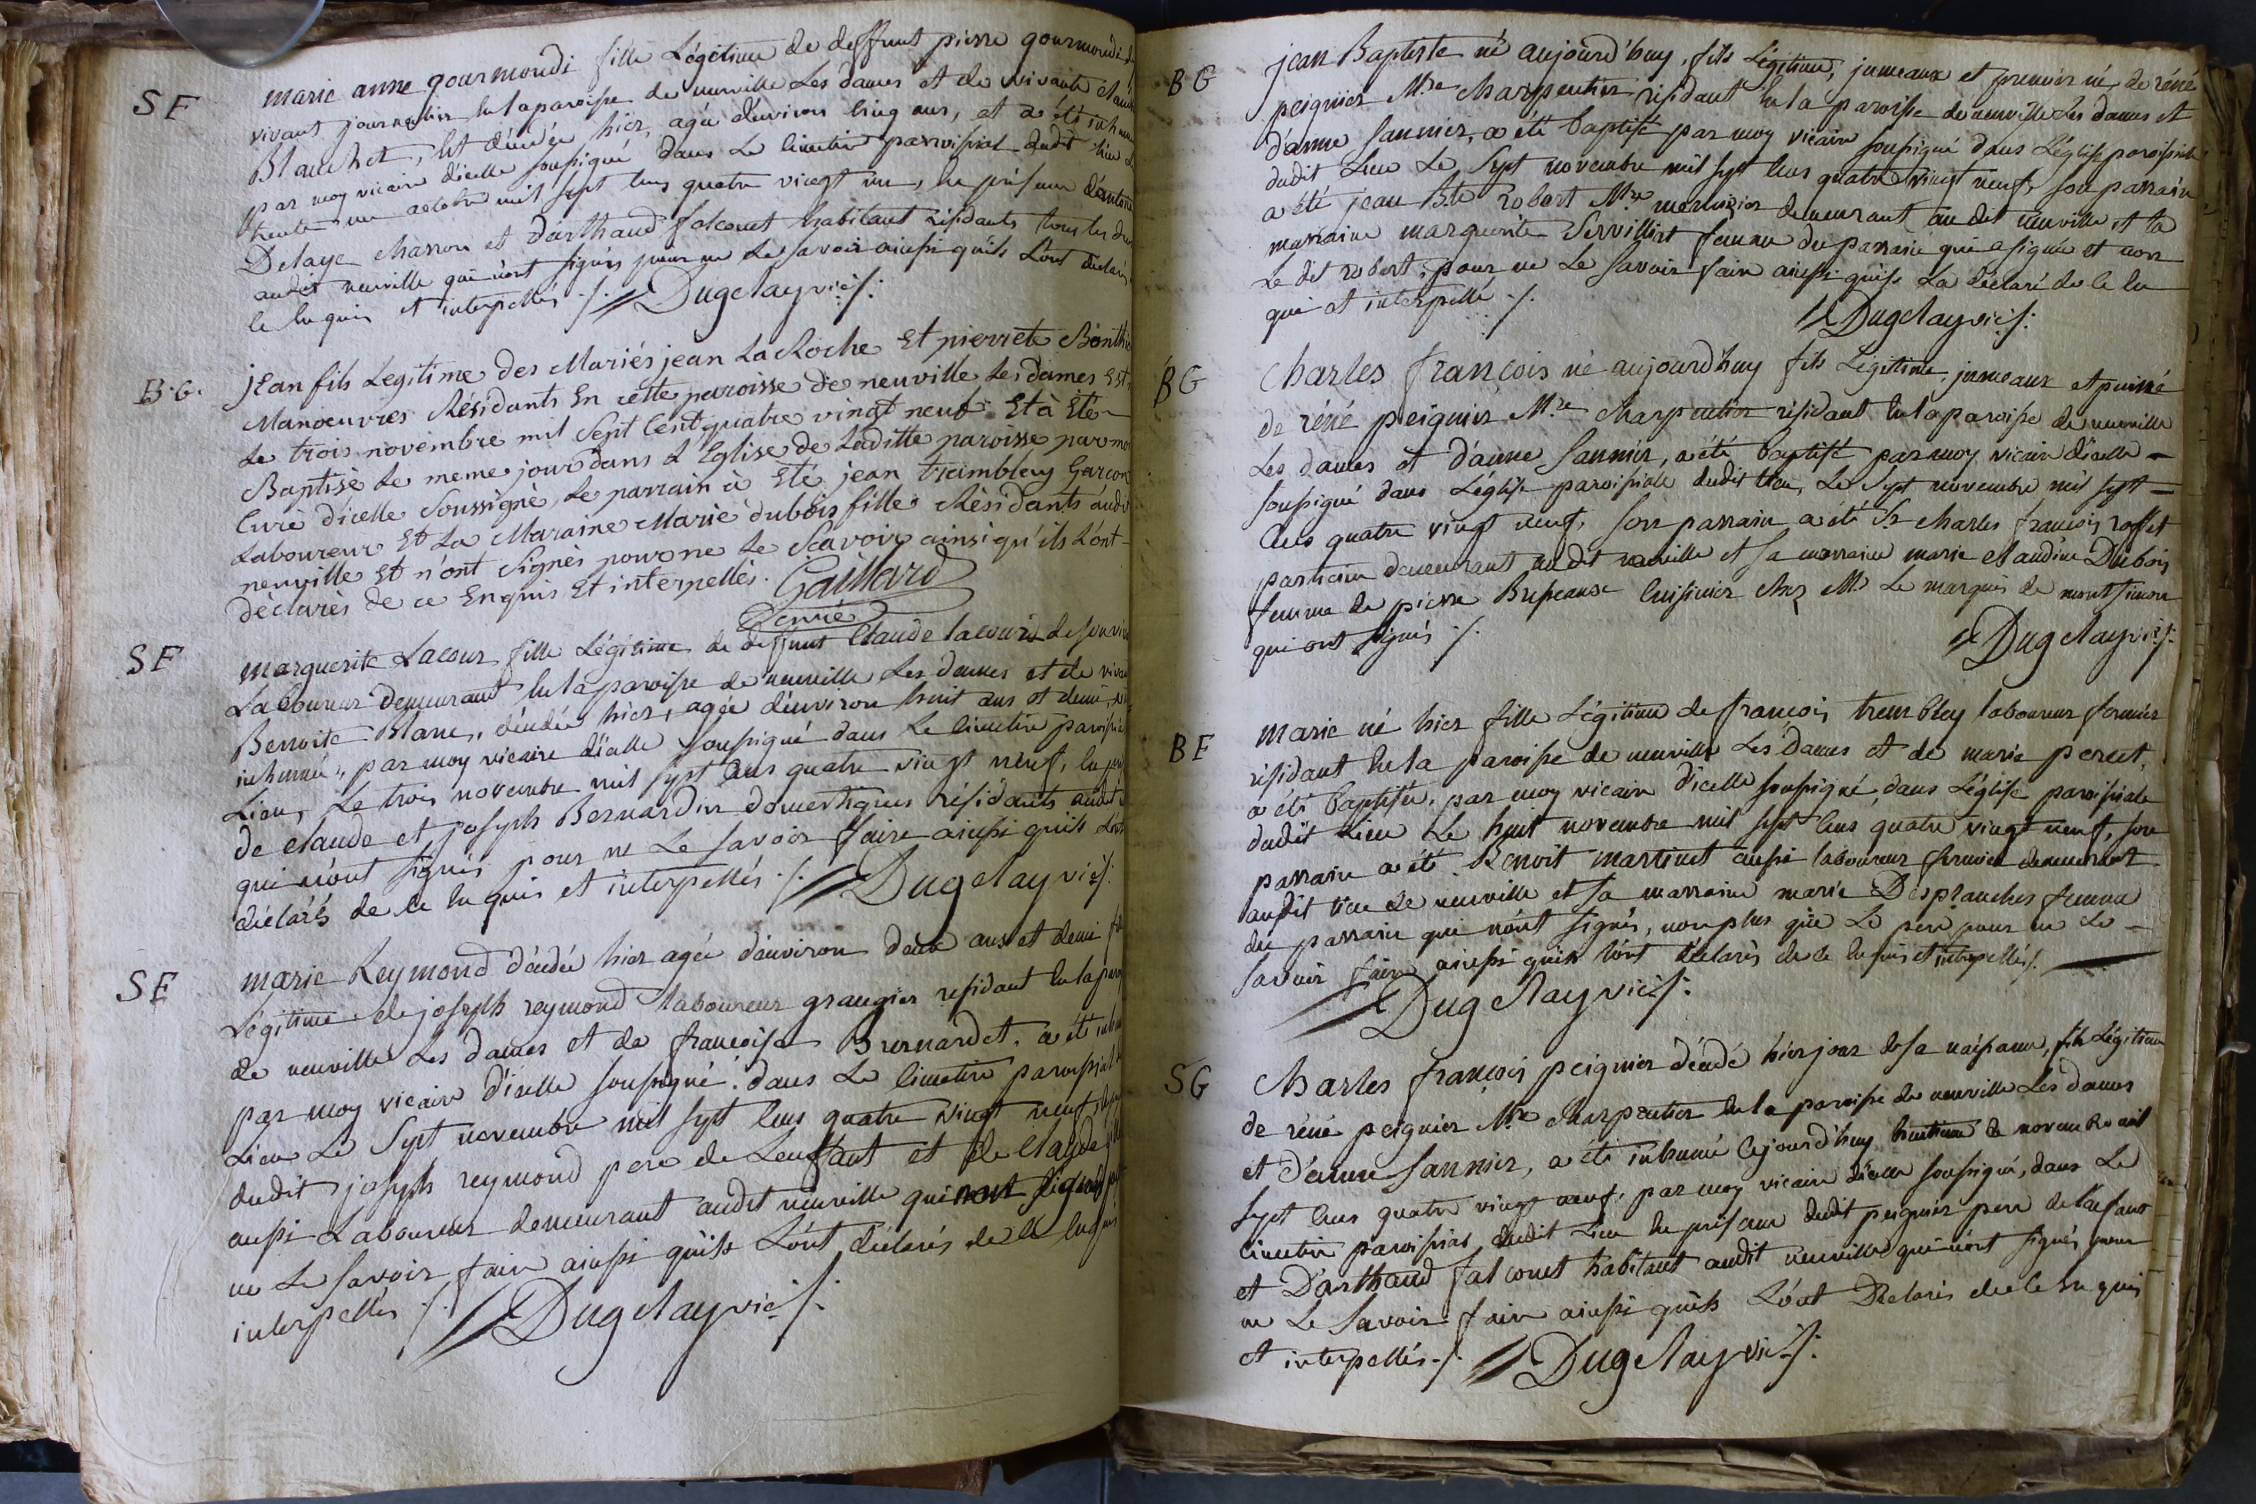 SF
marie anne gourmondi fille Légitime de deffunt pierre gourmondi
vivant journalier en la paroisse de neuville Les dames et de vivante
Blanchet, est décédée hier, agée d'environ cinq ans, et a été
par moy vicaire d'icelle soussigné dans Le cimetier paroissial dudit lieu
trente un octobre mil sept cens quatre vingt en présence
Delaye charron et Darthaud falconet habitant résidants tous les
audit neuville qui n'ont signés pour ne Le savoir ainssi qu'ils L'ont
ce enquis et interpellés ./. Dugelay vic:/.
B.G.
jEan fils Legitime des Mariés jean La Roche Et pierrete
Manoeuvres Résidants En cette paroisse de neuville Les dames Est
Le trois novembre mil Sept Cent quatre vingt neuf Et à Eté
Baptisé Le meme jour dans L'Eglise de Laditte paroisse par
Curé dicelle Soussigné, Le parrain à Eté jean trambley Garcon
Laboureur Et La Maraine Marie dubois fille Résidants
neuville Et n'ont Signés pour ne Le Scavoir ainsi qu'ils L'ont
déclarés de ce Enquis Et interpellés. Gaillard
Curé
SF
marguerite Lacour fille Légitime de deffunt Claude lacour de son
Laboureur demeurant en la paroisse de neuville Les dames et de
Benoite Blanc, décédée hier, agée d'environ huit ans et demi,
inhumée, par moy vicaire d'icelle soussigné dans Le cimetier
Lieu, Le trois novembre mil sept cens quatre vingt neuf, en
de claude et joseph Bernardin domestiques résidants audit
qui n'ont signés pour ne Le savoir faire ainssi qu'ils
déclarés de ce enquis et interpellés ./. Dugelay vic:/.
SF
marie Reymond décédée hier agée d'environ deux ans et demi
Légitime de joseph reymond laboureur grangier résidant en la
de neuville Les dames et de francoise Burnardet, a été
par moy vicaire d'icelle soussigné, dans Le cimetier paroissial
Lieu Le Sept novembre mil sept cens quatre vingt neuf,
dudit joseph reymond pere de Lenffant et de Claude
aussi Laboureur demeurant audit neuville qui n'ont signés
ne Le savoir faire ainssi qu'ils L'ont déclarés de ce enquis
interpellés ./. Dugelay vic:/.
BG
jean Baptiste né aujourd'huy, fils Légitime, jumeaux et premier né, de réné
peignier M.re charpentier résidant en la paroisse de neuville Les dames et
d'anne saunier, a été baptisé par moy vicaire soussigné dans L'église paroissiale
dudit Lieu Le Sept novembre mil sept cens quatre vingt neuf, son parrain
a été jean B.te robert M.re menuisier demeurant au dit neuville et la
marraine marguerite Servilliat femme du parrain qui a signée et non
Le dit robert, pour ne Le savoir faire ainssi qu'il La déclaré de ce en
quis et interpellé ./.
Dugelay vic:/.
BG
Charles françois né aujourd'huy fils Légitime, jumeaux et puiné
de réné peignier M.re charpentier résidant en la paroisse de neuville
Les dames et d'anne saunier, a été baptisé par moy vicaire d'icelle
soussigné dans L'église paroissiale dudit Lieu, Le Sept novembre mil sept
cens quatre vingt neuf, son parrain a été Sr charles françois
praticien demeurant audit neuville et sa marraine marie claudine Dubois
femme de pierre cuisinier chez M.r Le marquis de montsimon
qui ont signés ./.
Dugelay vic:/.
BF
marie né hier fille Légitime de françois trembley laboureur fermier
résidant en la paroisse de neuville Les dames et de marie perret,
a été baptisée, par moy vicaire d'icelle soussigné, dans L'église paroissiale
dudit Lieu Le huit novembre mil sept cens quatre vingt neuf, son
parrain a été Benoit martinet aussi laboureur fermier demeurant
audit lieu de neuville et sa marraine marie Desplanches femme
du parrain qui n'ont signés, non plus que Le pere pour ne Le
savoir faire ainssi qu'ils l'ont déclarés de ce enquis et interpellés/.
Dugelay vic:/.
SG
Charles françois peignier décédé hier jour de sa naissance, fils Légitime
de réné peignier M.re charpentier en la paroisse de neuville Les dames
et d'anne saunier, a été inhumé cejourd'huy huitieme de novembre mil
sept cens quatre vingt neuf, par moy vicaire d'icelle soussigné, dans Le
cimetier paroissial dudit Lieu en présence dudit peignier pere de l'enfant
et D'arthaud falconet habitant audit neuville qui n'ont signés pour
ne Le savoir faire ainssi qu'ils L'ont Déclarés de ce En quis
et interpellés ./. Dugelay vic:/.